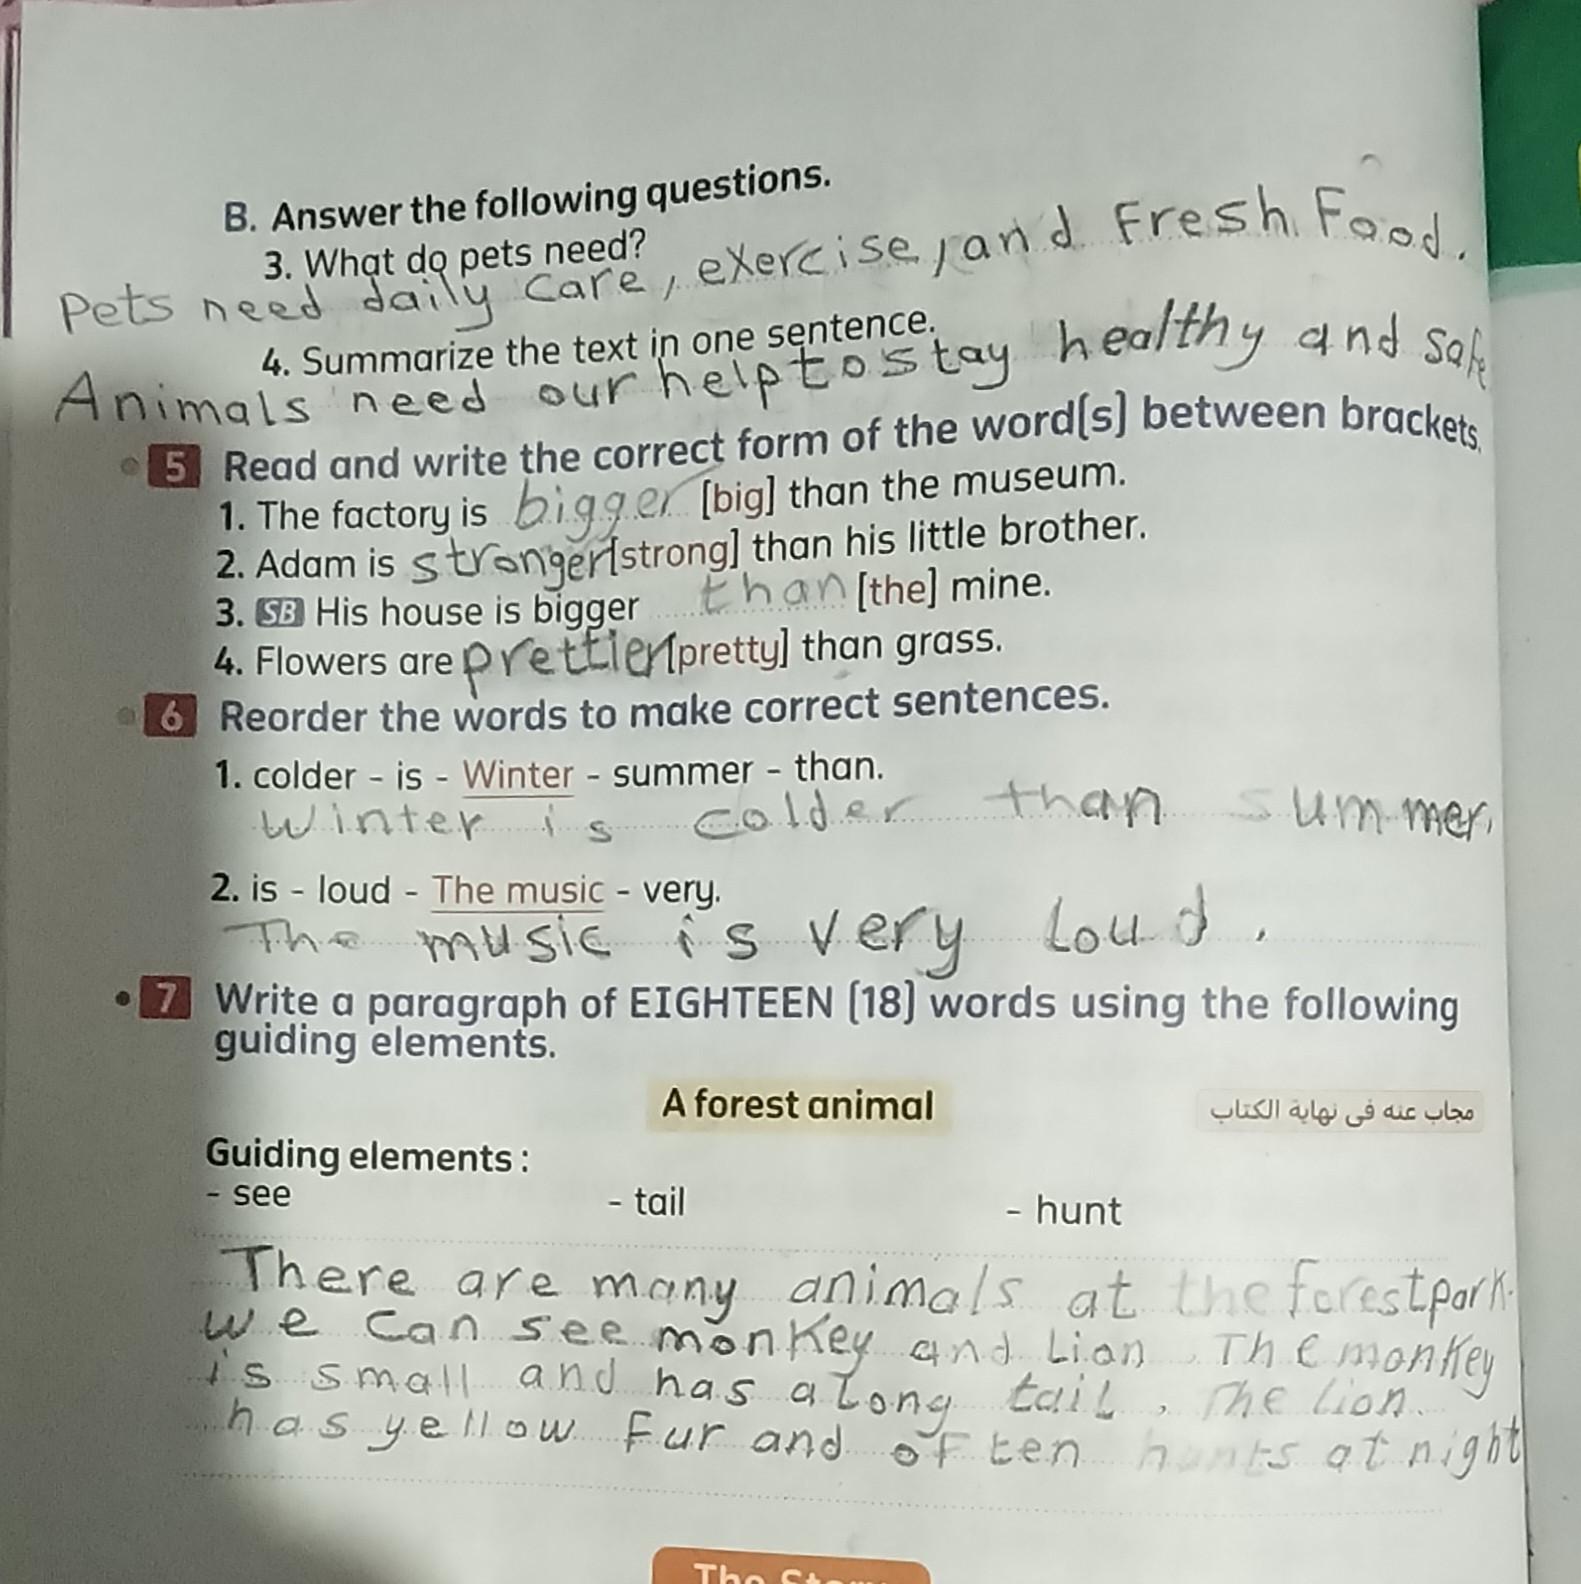 B. Answer the following questions.
3. What do pets need?
Pets need daily care, exercise, and Fresh Food.
4. Summarize the text in one sentence.
Animals need our help to stay healthy and safe
5 Read and write the correct form of the word(s) between brackets.
1. The factory is bigger [big] than the museum.
2. Adam is stronger [strong] than his little brother.
3. SB His house is bigger than [the] mine.
4. Flowers are prettier [pretty] than grass.
6 Reorder the words to make correct sentences.
1. colder - is - Winter - summer - than.
Winter is colder than summer.
2. is - loud - The music - very.
The music is very Loud.
7 Write a paragraph of EIGHTEEN (18) words using the following
guiding elements.
A forest animal
مجاب عنه فى نهاية الكتاب
Guiding elements :
- see - tail - hunt
There are many animals at the forest park.
we can see monkey and Lion. The monkey
is small and has a long tail. The Lion
has yellow fur and often hunts at night